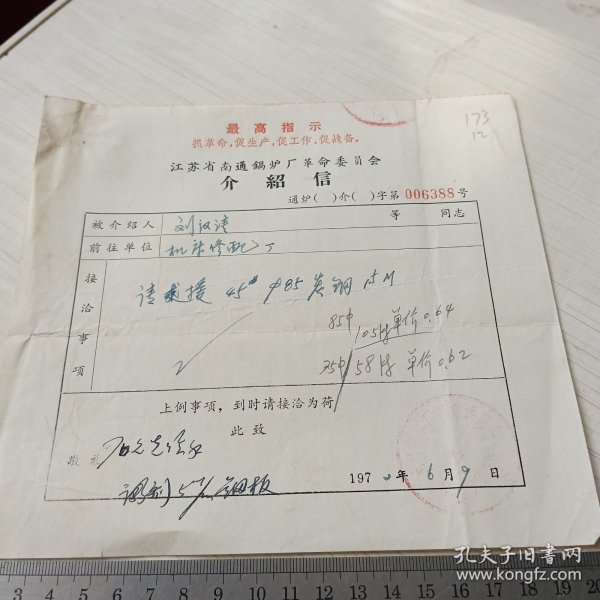 173
12
最高指示
抓革命,促生产,促工作,促战备。
江苏省南通锅炉厂革命委员会
介紹信
通炉( )介( )字第 006388 号
被介绍人 刘汉清 等 同志
前往单位 机床修配厂
接洽事项
请支援 45# φ85 炭钢 15M
85φ 105 单价 0.64
35φ 58 单价 0.62
上例事项,到时请接洽为荷
此致
敬礼
钢板
1970年6月9日
孔夫子旧书网
www.kongfz.com
3 4 5 6 7 8 9 10 11 12 13 14 15 16 17 18 19 20